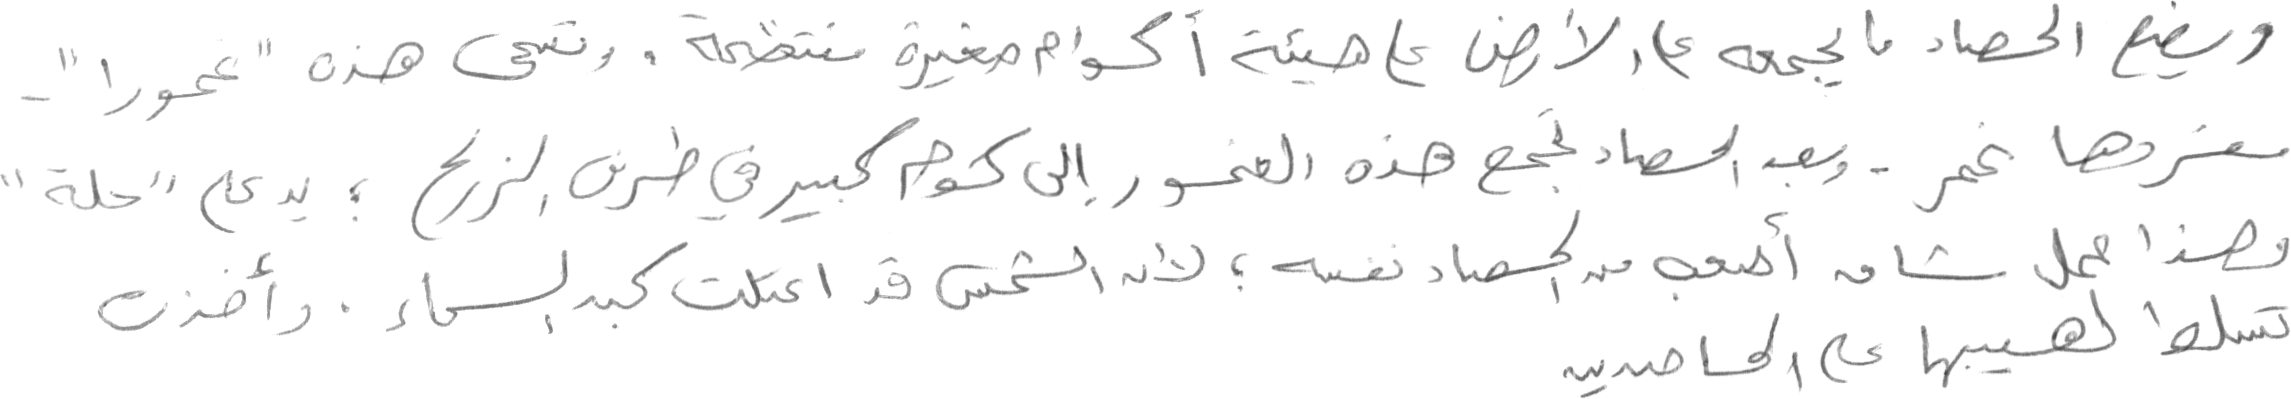 ويضع الحصاد ما يجمعه على الأرض على هيئة أكوام صغيرة منتظمة، وتسمى هذه "غمورا" -
مفردها غمر - وبعد الحصاد تجمع هذه الغمور إلى كوم كبير في طرف الزرع ؛ يدعى "حلة"
وهذا عمل شاق أصعب من الحصاد نفسه ؛ لأن الشمس قد اعتلت كبد السماء . وأخذت
تسلط لهيبها على الحاصدين